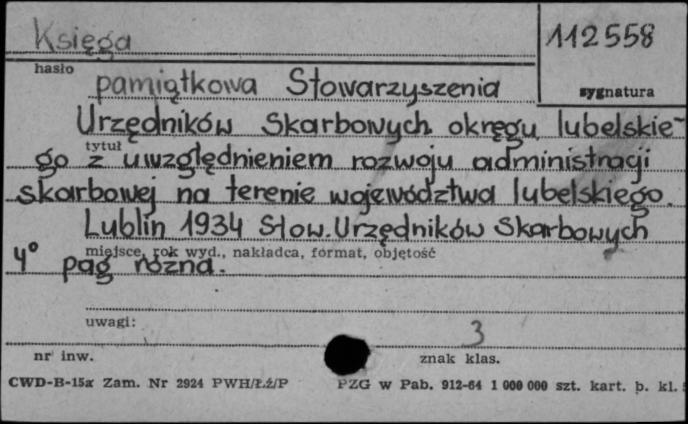 Księga
112558
hasło
sygnatura
pamiątkowa Stowarzyszenia
Urzędników Skarbowych okręgu lubelskie-
tytuł
go z uwzględnieniem rozwoju administracji
skarbowej na terenie województwa lubelskiego.
Lublin 1934 Stow. Urzędników Skarbowych
miejsce, rok wyd., nakładca, format, objętość
4° pag różna.
uwagi:
3
nr inw.
znak klas.
CWD-B-15a Zam. Nr 2924 PWH/Łź/P
PZG w Pab. 912-64 1 000 000 szt. kart. p. kl.